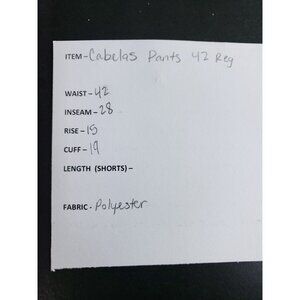 ITEM – Cabelas Pants 42 Reg
WAIST – 42
INSEAM – 28
RISE – 15
CUFF – 19
LENGTH (SHORTS) –
FABRIC - Polyester